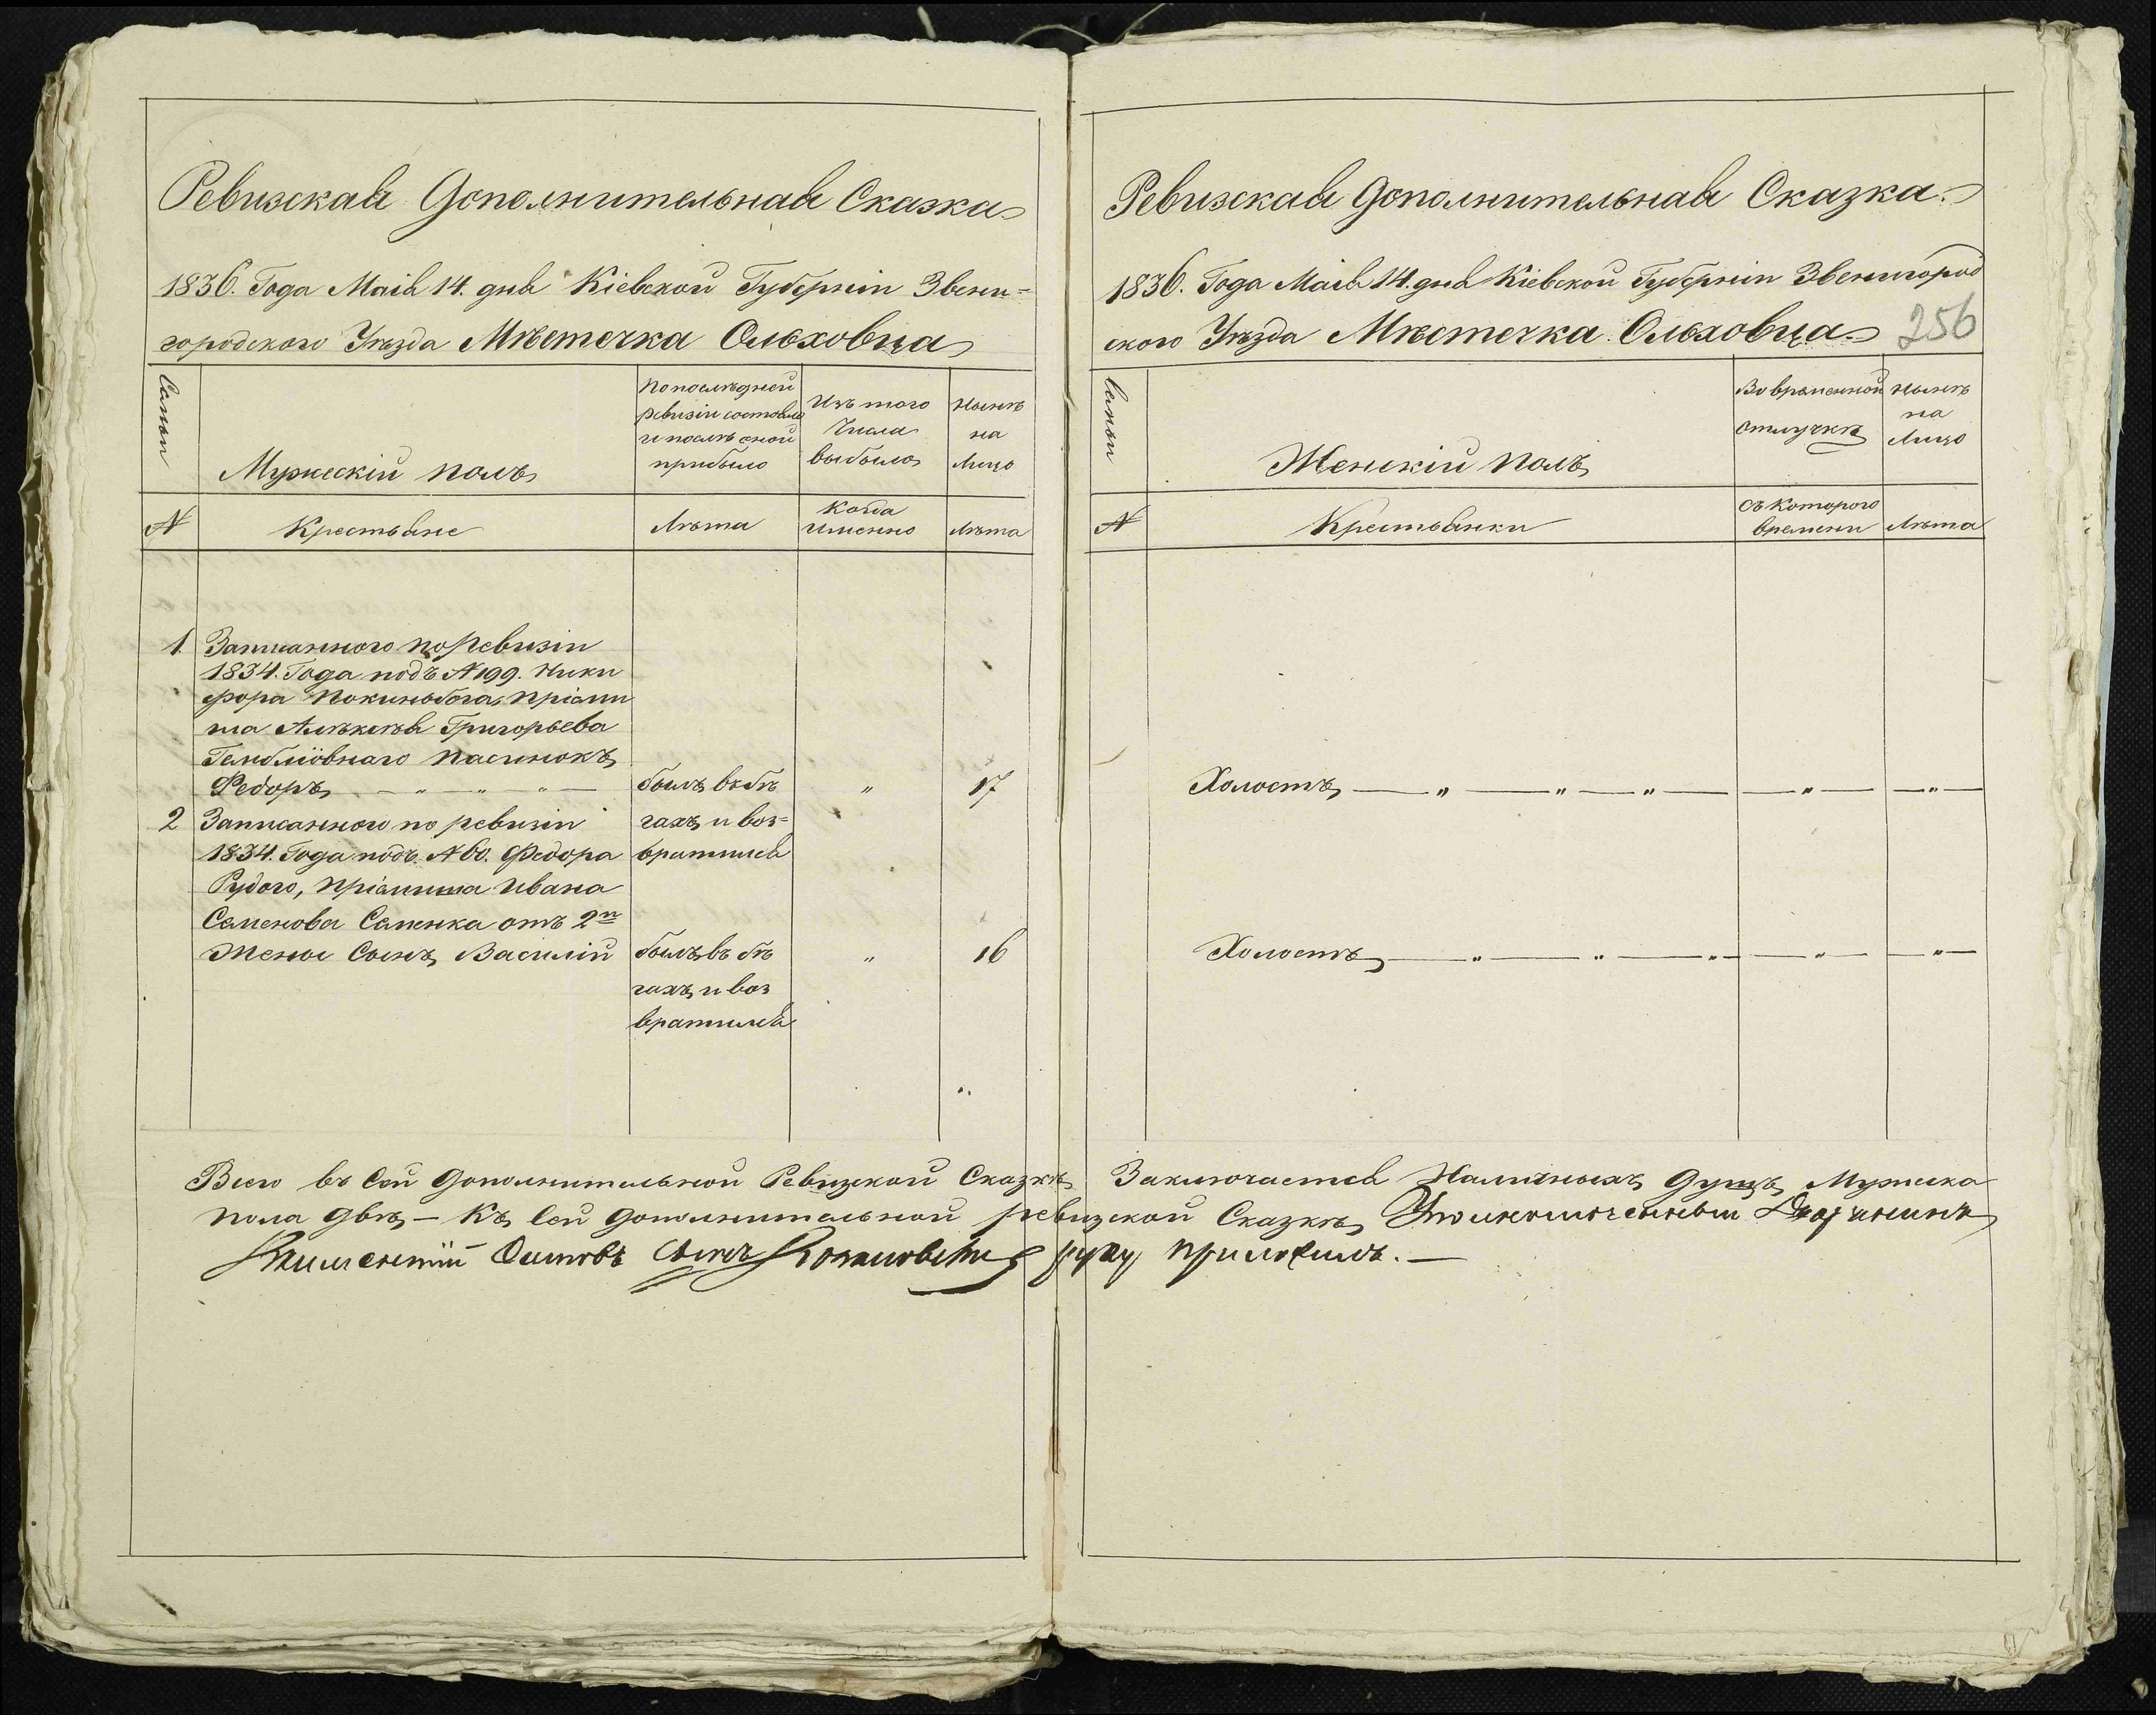 Ревизская Дополнительная Сказка
1836. Года Маія 14. дня Кіевской Губерніи Звени=
городского Уезда Мѣстечка Ольховца
Семьи
Мужескій полъ
По последней
ревизіи состояло
и послѣ оной
прибыло
Изъ того
Числа
выбыло
Нынѣ
на
Лицо
N
Крестьяне
Лѣта
Когда
именно
Лѣта
1
Записанного по Ревизіи
1834. Года подъ N 199. Ники
фора Покиньбога, пріимы
ша Алексѣя Григорьева
пасинокъ
Федоръ — " — " — " —
былъ въ бѣ
"
17
2
Записанного по ревизіи
гахъ и воз=
1834. Года подъ N 60. Федора
вратился
Рудого, пріимыша Ивана
Семенова Саменка отъ 2й
Жены Сынъ Василій
былъ въ бѣ
"
16
гахъ и воз
вратился
Всего въ Сей Дополнительной Ревизской Сказкѣ
пола двѣ — Къ сей дополнительной
Ревизская Дополнительная Сказка
1836. Года Маія 14. дня Кіевской Губерніи Звенигород
ского Уезда Мѣстечка Ольховца
256
Семьи
Женскій полъ
Во временной
отлучкѣ
Нынѣ
на
Лицо
N
Крестьянки
Съ которого
времени
Лѣта
Холостъ — " — " — " — " — " —
Холостъ — " — " — " — " — " —
Заключается Наличныхъ душъ Мужеска
ревизской Сказкѣ Дворянинъ
руку приложилъ. —